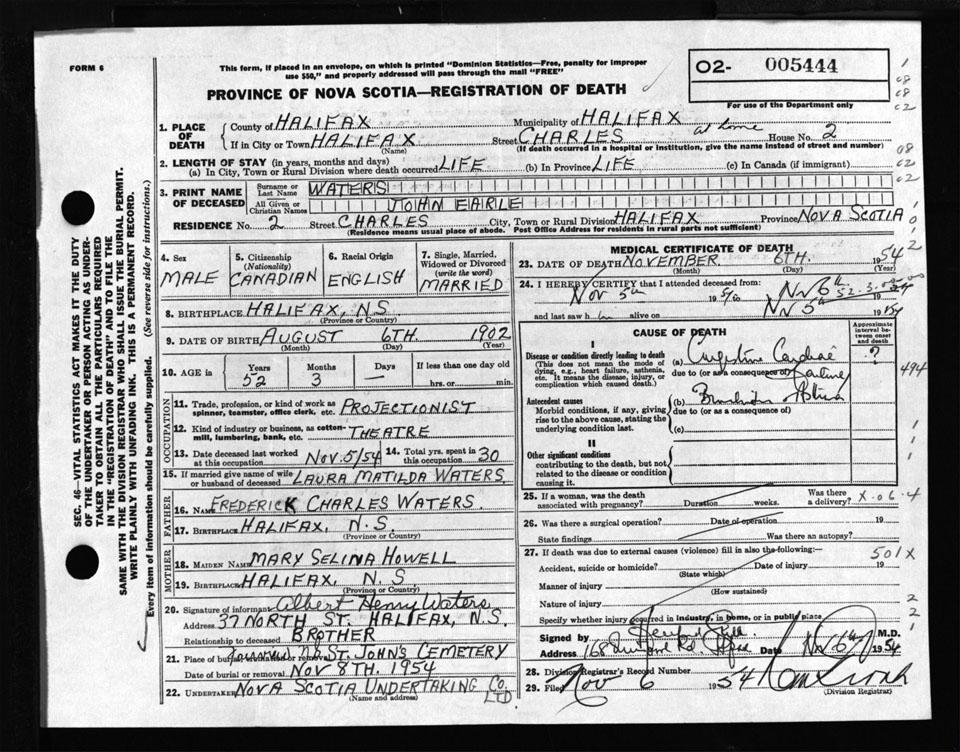 FORM 6
This form, if placed in an envelope, on which is printed "Dominion Statistics—Free, penalty for improper
use $50," and properly addressed will pass through the mail "FREE"
02- 005444
PROVINCE OF NOVA SCOTIA—REGISTRATION OF DEATH
For use of the Department only
1. PLACE OF DEATH
County of HALIFAX Municipality of HALIFAX
If in City or Town HALIFAX Street CHARLES at home House No. 2
(Name) (If death occurred in a hospital or institution, give the name instead of street and number)
2. LENGTH OF STAY (in years, months and days)
(a) In City, Town or Rural Division where death occurred LIFE (b) In Province LIFE (c) In Canada (if immigrant)
3. PRINT NAME OF DECEASED
Surname or Last Name WATERS
All Given or Christian Names JOHN EARLE
RESIDENCE No. 2 Street CHARLES City, Town or Rural Division HALIFAX Province NOVA SCOTIA
(Residence means usual place of abode. Post Office Address for residents in rural parts not sufficient)
4. Sex MALE
5. Citizenship (Nationality) CANADIAN
6. Racial Origin ENGLISH
7. Single, Married, Widowed or Divorced (write the word) MARRIED
8. BIRTHPLACE HALIFAX, N.S.
(Province or Country)
9. DATE OF BIRTH AUGUST 6TH. 1902
(Month) (Day) (Year)
10. AGE in Years 52 Months 3 Days — If less than one day
hrs. or min.
OCCUPATION
11. Trade, profession, or kind of work as
spinner, teamster, office clerk, etc. PROJECTIONIST
12. Kind of industry or business, as cotton-
mill, lumbering, bank, etc. THEATRE
13. Date deceased last worked
at this occupation NOV. 5/54
14. Total yrs. spent in
this occupation 30
15. If married give name of wife
or husband of deceased LAURA MATILDA WATERS.
FATHER
16. NAME FREDERICK CHARLES WATERS
17. BIRTHPLACE HALIFAX, N.S.
(Province or Country)
MOTHER
18. MAIDEN NAME MARY SELINA HOWELL
19. BIRTHPLACE HALIFAX, N.S.
(Province or Country)
20. Signature of informant Albert Henry Waters
Address 37 NORTH ST. HALIFAX, N.S.
Relationship to deceased BROTHER
21. Place of burial, cremation or removal ST. JOHN'S CEMETERY
Date of burial or removal NOV 8TH. 1954
22. UNDERTAKER NOVA SCOTIA UNDERTAKING CO. LTD
(Name and address)
MEDICAL CERTIFICATE OF DEATH
23. DATE OF DEATH NOVEMBER 6TH. 1954
(Month) (Day) (Year)
24. I HEREBY CERTIFY that I attended deceased from:
Nov 5th 19 54 to Nov 6th
and last saw h alive on Nov 5th 19 54
CAUSE OF DEATH
Approximate interval between onset and death
I
Disease or condition directly leading to death
(This does not mean the mode of
dying, e.g., heart failure, asthenia,
etc. It means the disease, injury, or
complication which caused death.)
(a) Congestive Cardiac ?
due to (or as a consequence of) Failure
Antecedent causes
Morbid conditions, if any, giving
rise to the above cause, stating the
underlying condition last.
(b)
due to (or as a consequence of)
(c)
II
Other significant conditions
contributing to the death, but not
related to the disease or condition
causing it.
25. If a woman, was the death
associated with pregnancy? Duration weeks. Was there
a delivery? X.06.4
26. Was there a surgical operation? Date of operation 19
State findings Was there an autopsy?
27. If death was due to external causes (violence) fill in also the following:— 501X
Accident, suicide or homicide? Date of injury 19
(State which)
Manner of injury
(How sustained)
Nature of injury
Specify whether injury occurred in industry, in home, or in public place
Signed by M.D.
Address 168 Rd. Date Nov 6th 1954
28. Division Registrar's Record Number
29. Filed Nov 6 1954
(Division Registrar)
494
SEC. 46—VITAL STATISTICS ACT MAKES IT THE DUTY
OF THE UNDERTAKER OR PERSON ACTING AS UNDER-
TAKER TO OBTAIN ALL THE PARTICULARS REQUIRED
IN THE "REGISTRATION OF DEATH" AND TO FILE THE
SAME WITH THE DIVISION REGISTRAR WHO SHALL ISSUE THE BURIAL PERMIT.
WRITE PLAINLY WITH UNFADING INK. THIS IS A PERMANENT RECORD.
Every item of information should be carefully supplied. (See reverse side for instructions.)